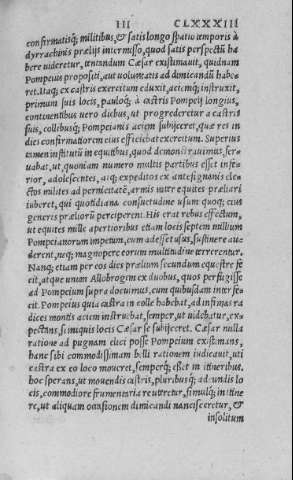 III CLXXXIII
confirmatisq; militibus, & satis longo spatio temporis à
dyrrachinis prælijs intermisso, quod satis perspectū ha
bere uideretur, tentandum Cæsar existimauit, quidnam
Pompeius propositi, aut uoluntatis ad dimicandū habe
ret. Itaq; ex castris exercitum eduxit, aciemq; instruxit,
primum suis locis, pauloq; à castris Pompeij longius,
continentibus uero diebus, ut progrederetur a castris
suis, collibusq; Pompeianis aciem subijceret, quæ res in
dies confirmatiorem eius efficiebat exercitum. Superius
tamen institutū in equitibus, quod demonstrauimus, ser
uabat, ut, quoniam numero multis partibus esset infe
rior, adolescentes, atq; expeditos ex antesignanis ele
ctos milites ad pernicitatē, armis inter equites præliari
iuberet, qui quotidiana consuetudine usum quoq; eius
generis præliorū perciperent. His erat rebus effectum,
ut equites mille apertioribus etiam locis septem millium
Pompeianorum impetum, cum adesset usus, sustinere au
derent, neq; magnopere eorum multitudine terrerentur.
Nanq; etiam per eos dies prælium secundum equestre fe
cit, atque unum Allobrogem ex duobus, quos perfugisse
ad Pompeium supra docuimus, cum quibusdam interfe
cit. Pompeius quia castra in colle habebat, ad infimas ra
dices montis aciem instruebat, semper, ut uidebatur, ex-
pectans, si iniquis locis Cæsar se subijceret. Cæsar nulla
ratione ad pugnam elici posse Pompeium existimans,
hanc sibi commodissimam belli rationem iudicauit, uti
castra ex eo loco moueret, semperq; esset in itineribus,
hoc sperans, ut mouendis castris, pluribusq; adeundis lo
cis, commodiore frumentaria re uteretur, simulq; in itine
re, ut aliquam occasionem dimicandi nancisceretur, &
insolitum